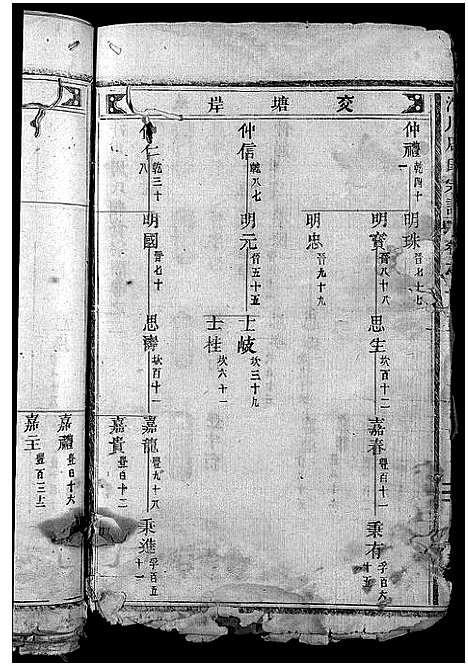 交塘岸
仲禮 乾四十一
明珠 晉七十七
明賓 晉八十八
思生 坎百十二
嘉春 豐百十一
秉有 孚百六十五
明忠 晉九十九
仲信 乾八七
明元 晉五十五
士岐 坎三十九
士桂 坎六十一
仁 乾三十八
明國 晉七十
思濤 坎百十一
嘉龍 豐九十八
秉進 孚百五十一
嘉貴 豐百十二
嘉禮 豐百十六
嘉主 豐百三十二